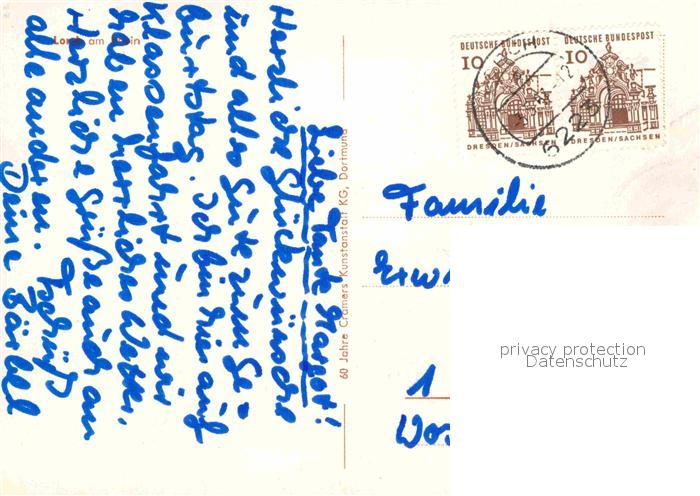 Lorch am Rhein
Liebe Tante Margot!
Herzliche Glückwünsche
und alles Gute zum Ge-
burtstag. Ich bin hier auf
Klassenfahrt und wir
haben herrliches Wetter.
Herzliche Grüße auch an
alle anderen. Tschüß
Deine Bärbel
60 Jahre Cramers Kunstanstalt KG, Dortmund
DEUTSCHE BUNDESPOST
10
DRESDEN/SACHSEN
DEUTSCHE BUNDESPOST
10
DRESDEN/SACHSEN
6223
Familie
1
privacy protection
Datenschutz